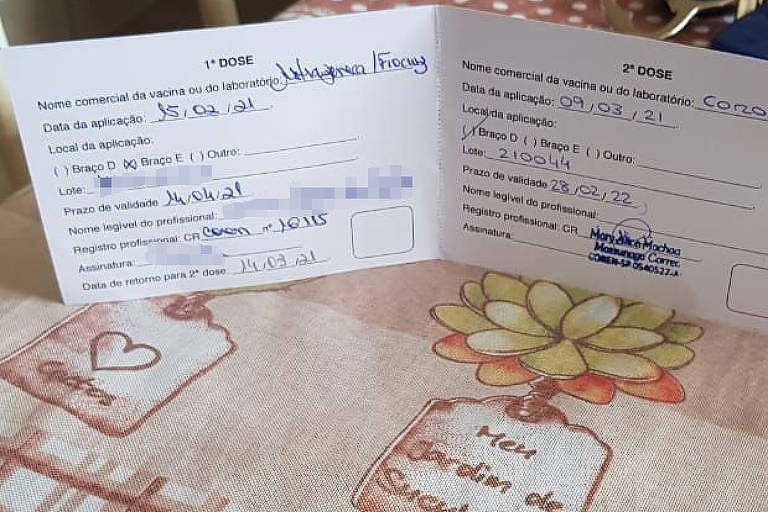 1ª DOSE
Nome comercial da vacina ou do laboratório: Astrazeneca/Fiocruz
Data da aplicação: 15/02/21
Local da aplicação:
( ) Braço D (X) Braço E ( ) Outro:
Lote:
Prazo de validade 14/04/21
Nome legível do profissional:
Registro profissional: CR Coren nº
Assinatura:
Data de retorno para 2ª dose 14/03/21
2ª DOSE
Nome comercial da vacina ou do laboratório: Coro
Data da aplicação: 09/03/21
Local da aplicação:
(/) Braço D ( ) Braço E ( ) Outro:
Lote: 210044
Prazo de validade 28/02/22
Nome legível do profissional:
Registro profissional: CR
Assinatura:
COREN-SP 0540527-A
Meu
Jardim de